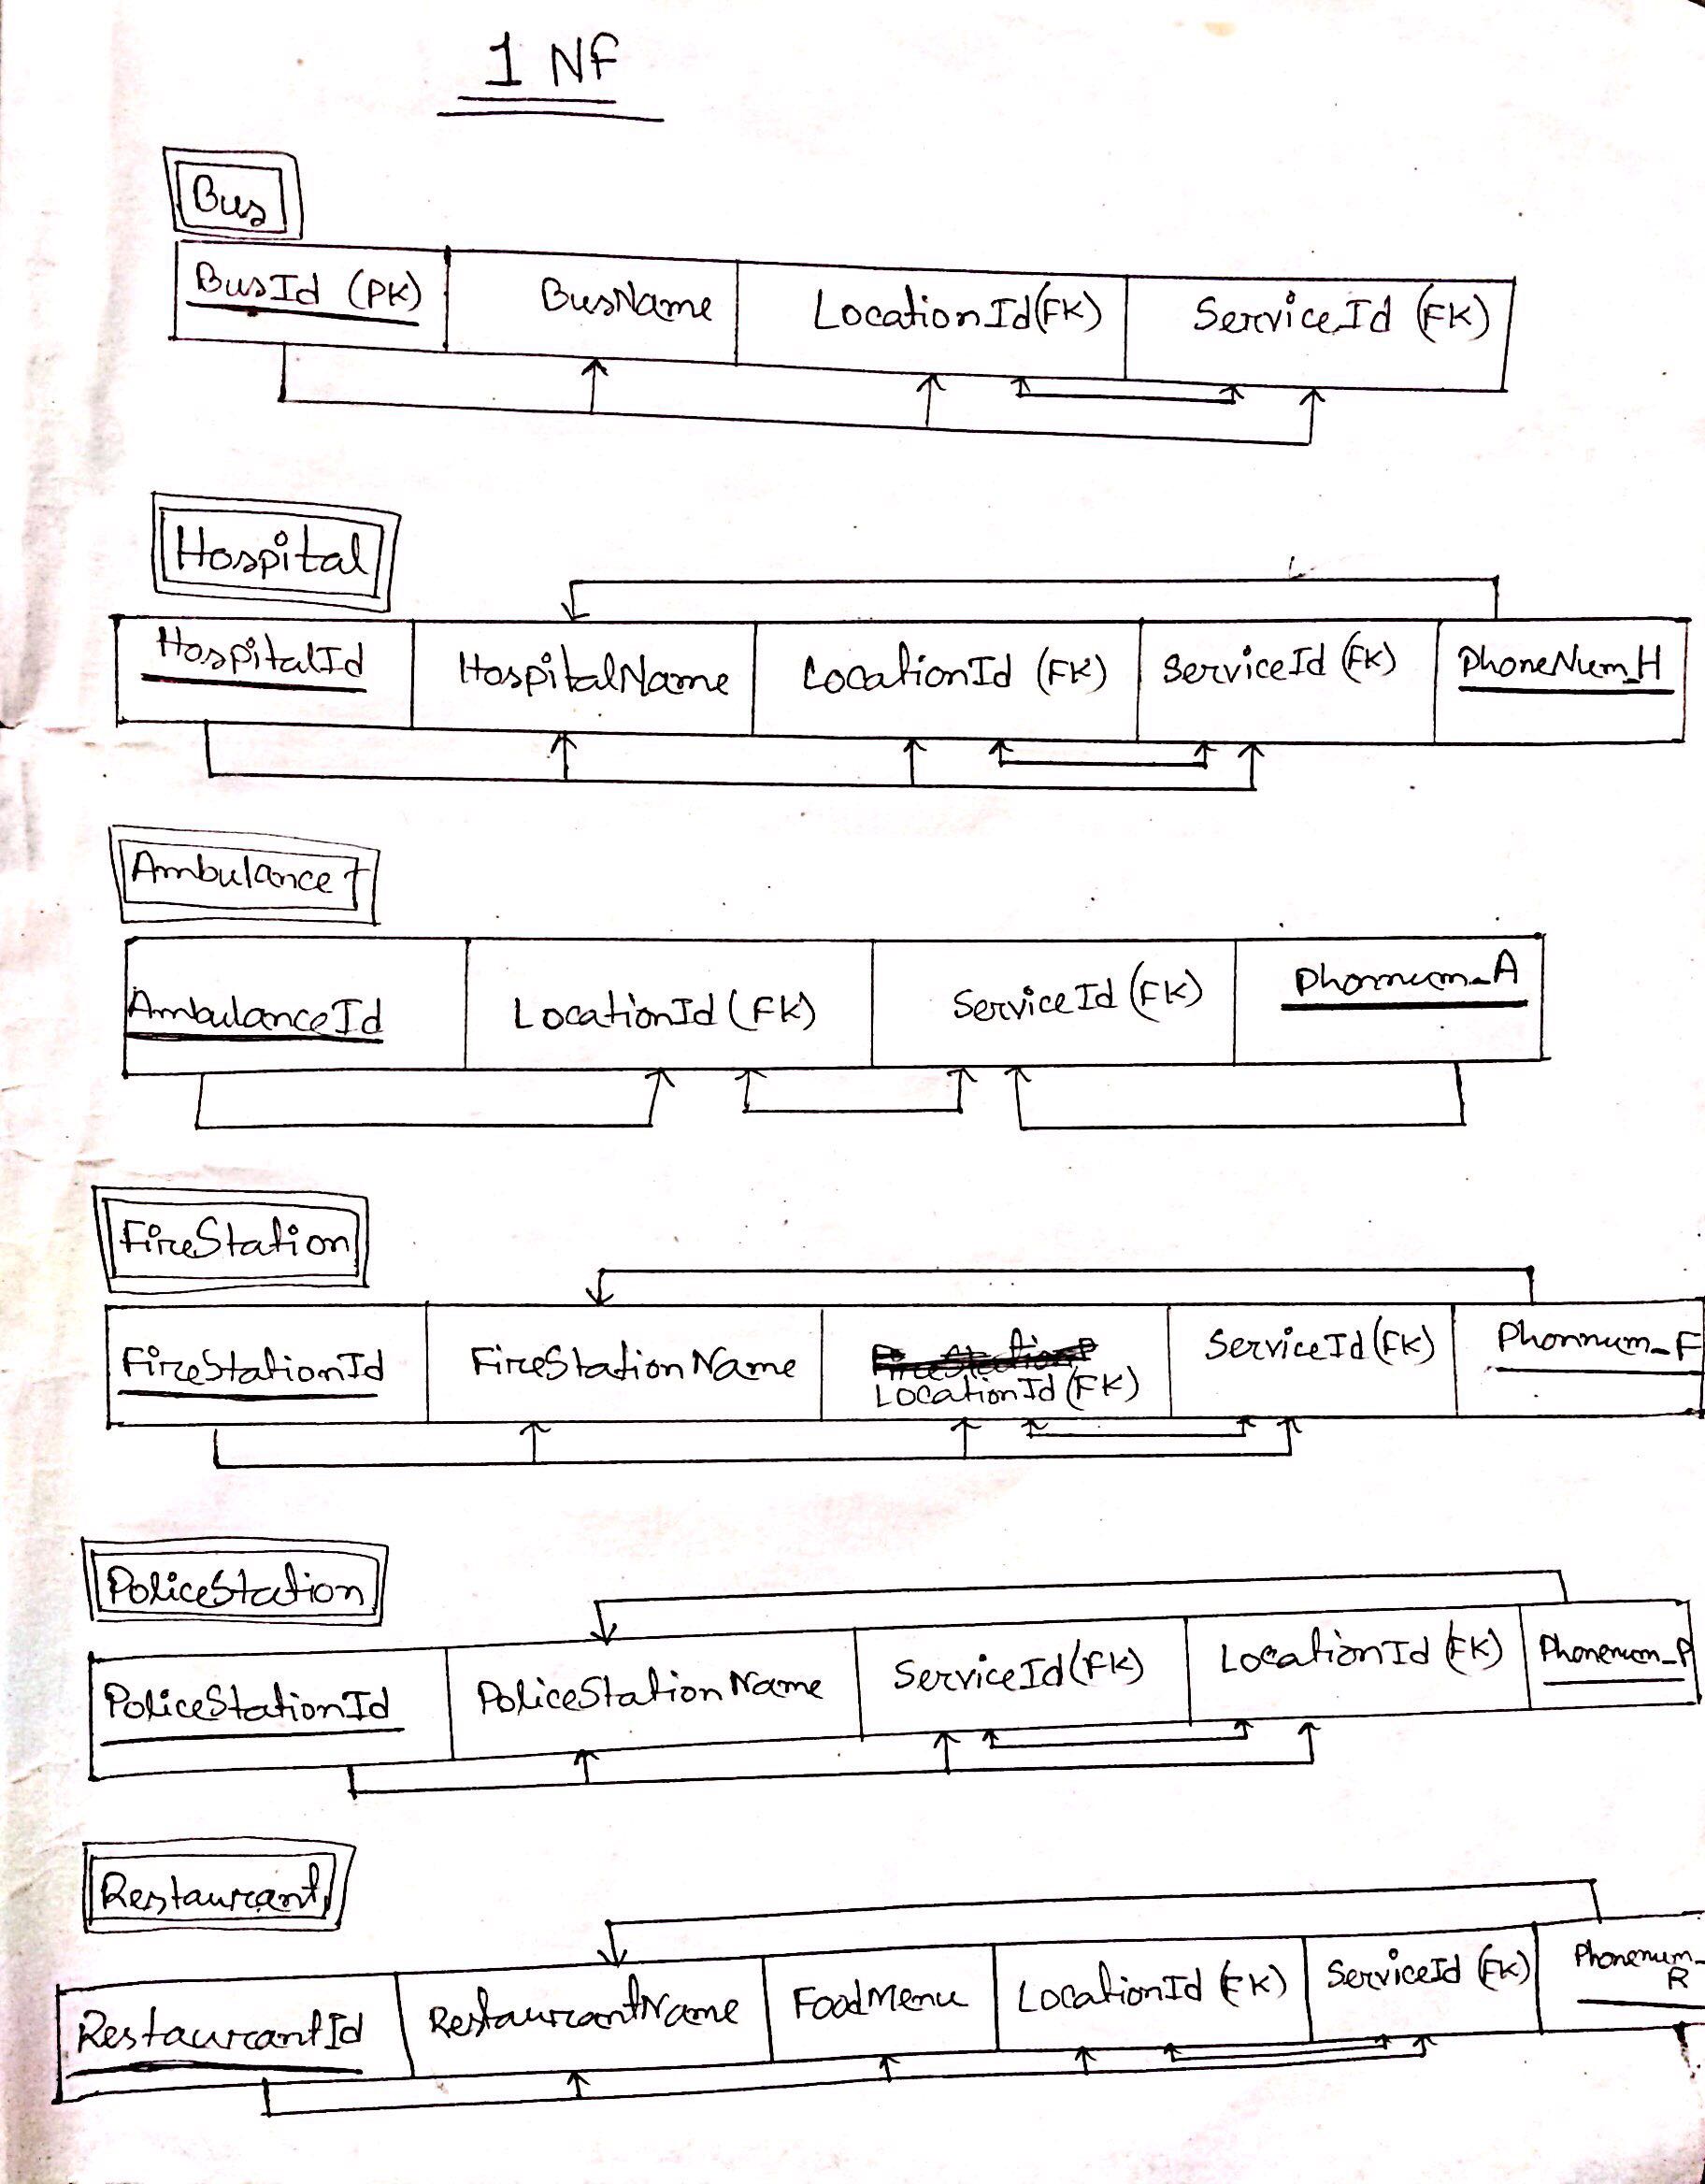 1 NF
Bus
BusId (PK) BusName LocationId(FK) ServiceId (FK)
Hospital
HospitalId HospitalName LocationId (FK) ServiceId (FK) PhoneNum_H
Ambulance
AmbulanceId LocationId (FK) ServiceId (FK) Phonnum_A
FireStation
FireStationId FireStationName LocationId (FK) ServiceId (FK) Phonnum_F
PoliceStation
PoliceStationId PoliceStationName ServiceId (FK) LocationId (FK) Phonenum_P
Restaurant
RestaurantId RestaurantName FoodMenu LocationId (FK) ServiceId (FK) Phonenum_R